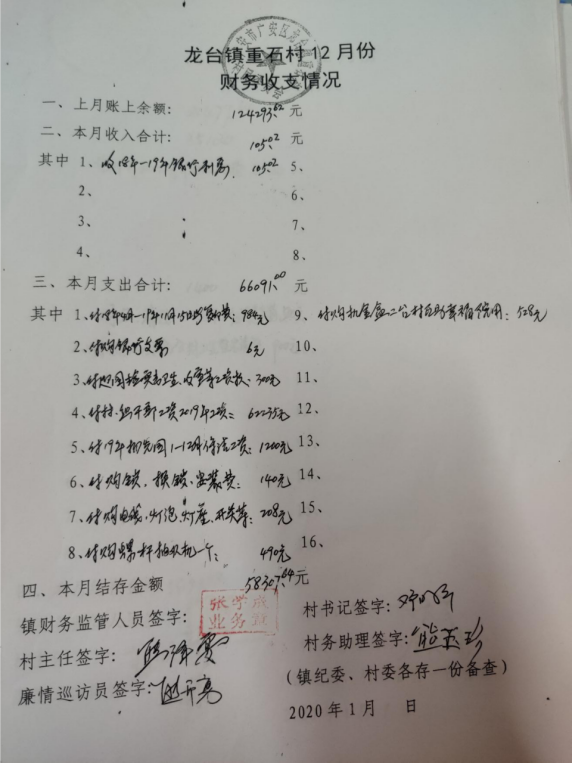 龙台镇重石村12月份
财务收支情况
一、上月账上余额: 124293.62 元
二、本月收入合计: 105.02 元
其中 1、收18年-19年银行利息 105.02 5、
2、 6、
3、 7、
4、 8、
三、本月支出合计: 66091.00 元
其中 1、付18年4月-19年11月 费: 984元 9、付购 : 528元
2、付购银行支票 6元 10、
3、付 卫生、 : 300元 11、
4、付村、组干部工资2019年工资: 62235元 12、
5、付19年 1-12月保洁工资: 1200元 13、
6、付购锁、换锁、安装费: 140元 14、
7、付购电线、灯泡、灯座、开关等: 208元 15、
8、付购螺杆抽水机一个: 490元 16、
四、本月结存金额 58307.64 元
镇财务监管人员签字: 张学成
业务
村书记签字:
村主任签字:
村务助理签字:
廉情巡访员签字:
(镇纪委、村委各存一份备查)
2020年1月 日